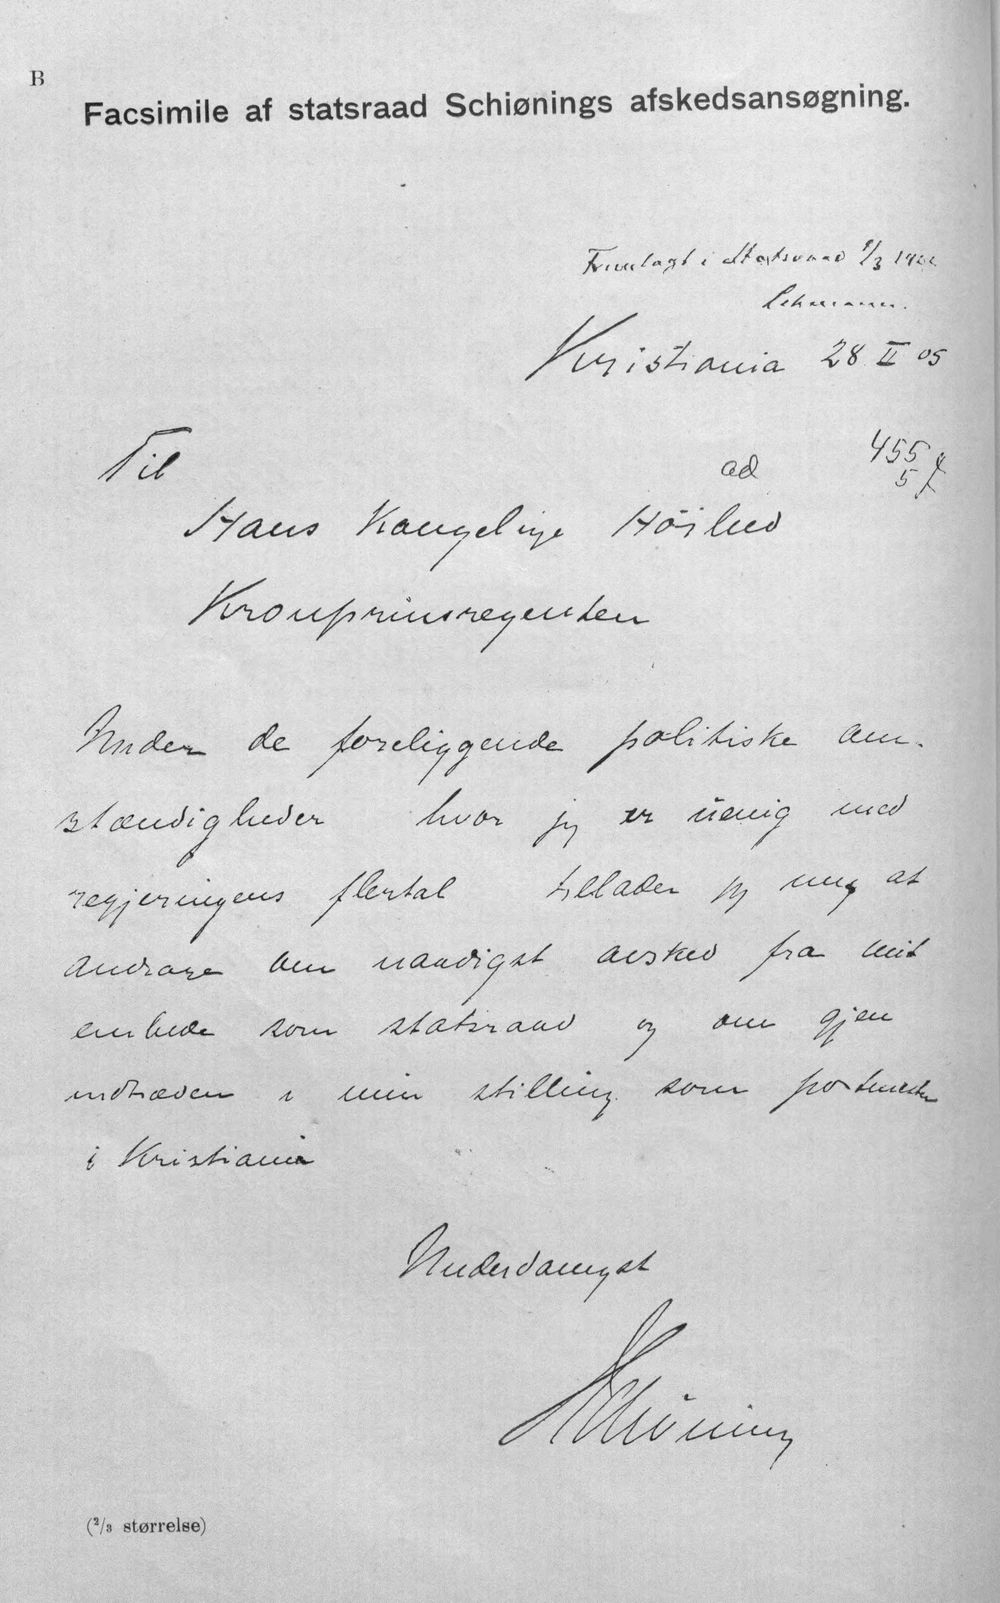 B
Facsimile af statsraad Schiønings afskedsansøgning.
Fremlagt i Statsraad 1/3
Lehmann.
Kristiania 28 II 05
Til
ad 455
5
Hans Kongelige Höihed
Kronprinsregenten
Under de foreliggende politiske om-
stændigheder hvor jeg er uenig med
regjeringens flertal tillader jeg mig at
andrage om naadigst avsked fra mit
embede som statsraad og om gjen
indtræden i min stilling som postmester
i Kristiania
Underdanigst
Schiöning
(2/3 størrelse)